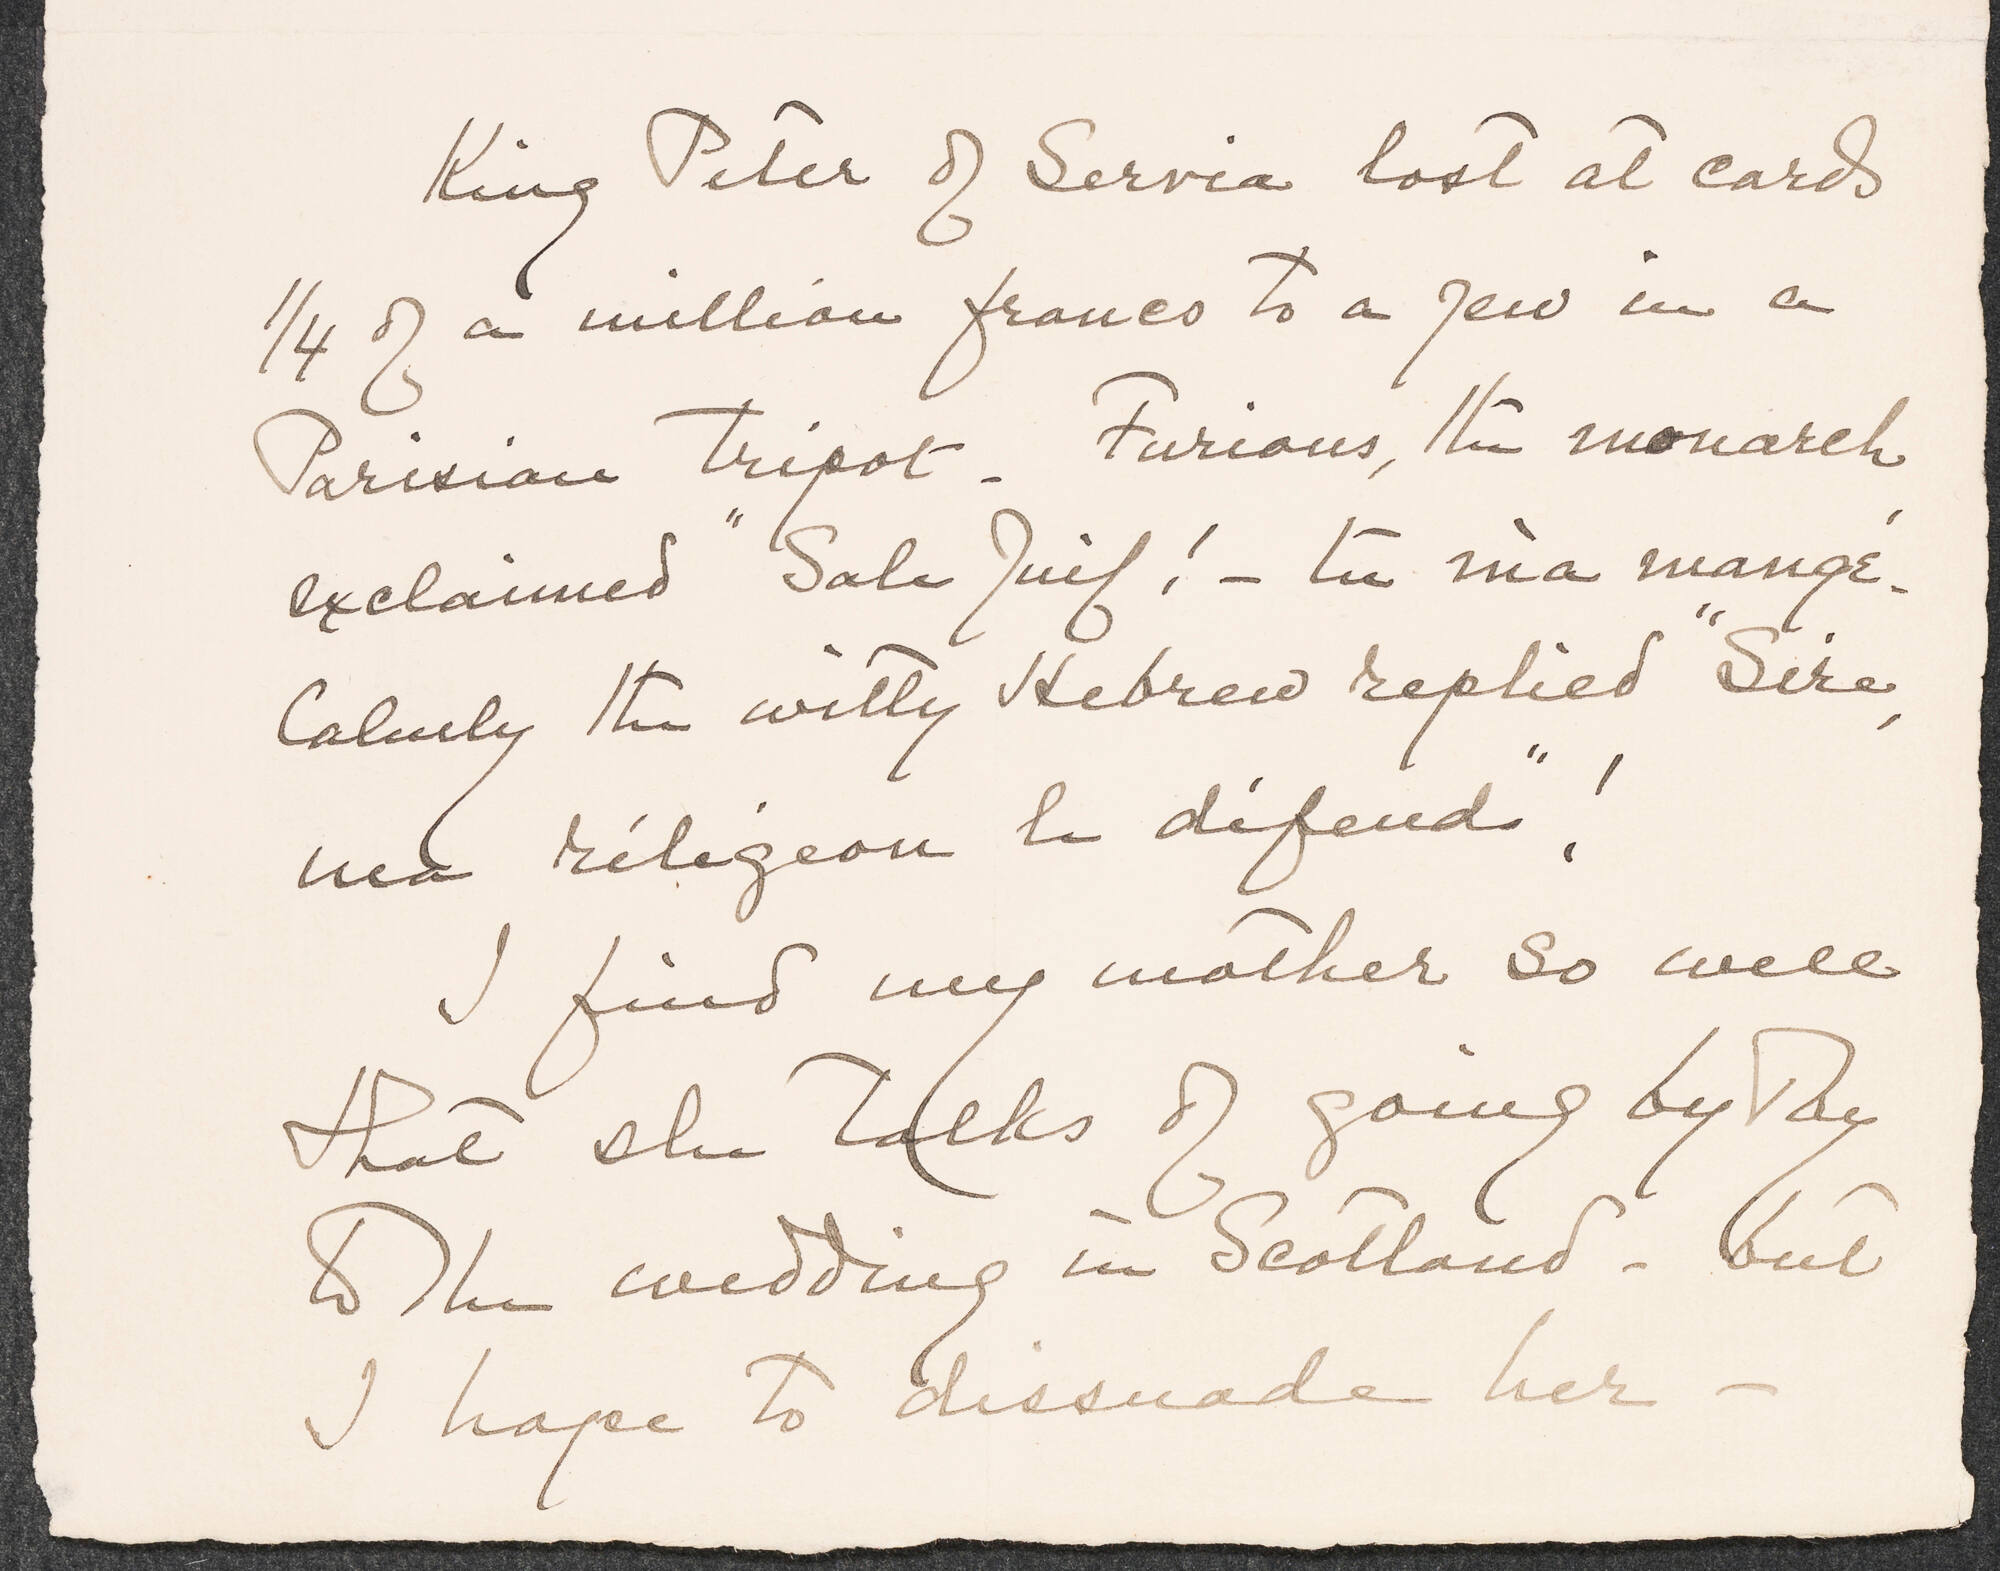 King Peter of Servia lost at cards
1/4 of a million francs to a Jew in a
Parisian tripot - Furious, the monarch
exclaimed "Sale Juif! - tu m'a mangé! -
Calmly the witty Hebrew replied "Sire,
ma réligion le défend"!
I find my mother so well
that she talks of going by Day
to the wedding in Scotland - but
I hope to dissuade her -